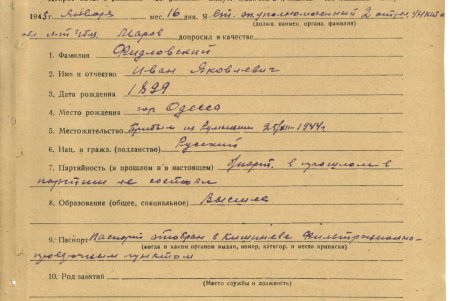 1945 г. Января мес. 16 дня. Я ст. оп. уполномоченный 2 отдел. УНКГБ
(должн. наимен. органа, фамилия)
обл. Шаров допросил в качестве
1. Фамилия Фидловский
2. Имя и отчество Иван Яковлевич
3. Дата рождения 1899
4. Место рождения гор. Одесса
5. Местожительство Прибыл из Румынии 1944 г.
6. Нац. и гражд. (подданство) Русский
7. Партийность (в прошлом и в настоящем) б/парт. в прошлом в
партии не состоял
8. Образование (общее, специальное) Высшее
9. Паспорт Паспорт отобран в Кишиневе Фильтрационно-
(когда и каким органом выдан, номер, категор. и место приписки)
проверочным пунктом
10. Род занятий
(Место службы и должность)